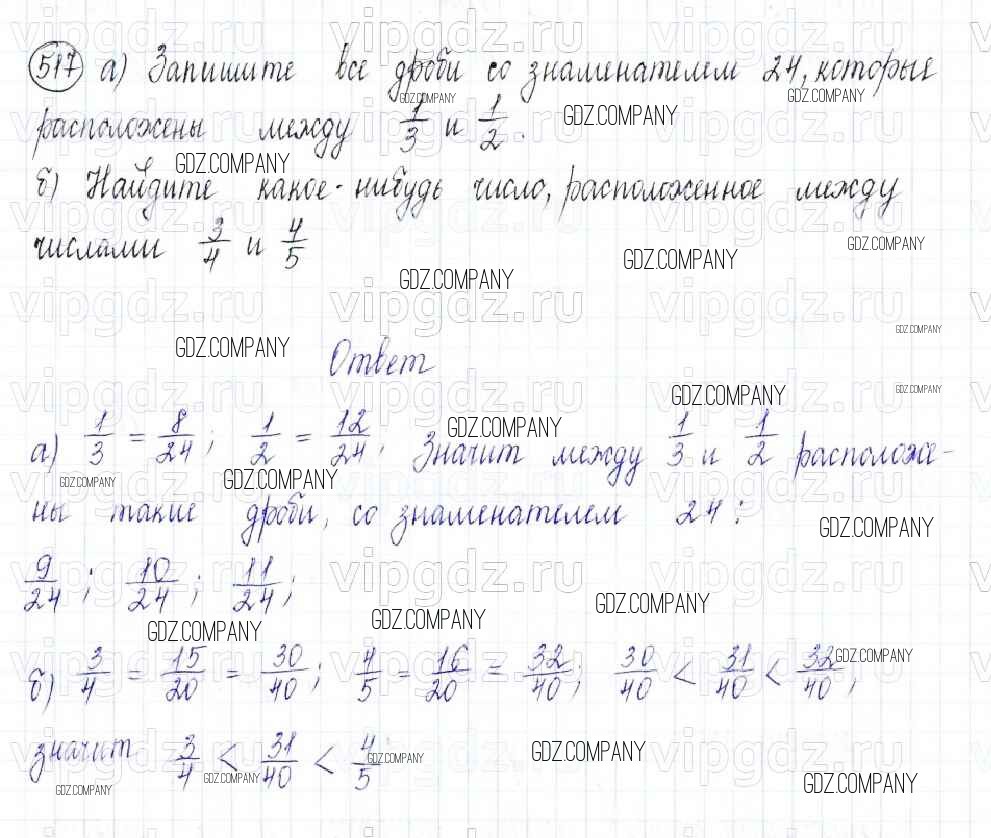 517 а) Запишите все дроби со знаменателем 24, которые
расположены между 1/3 и 1/2.
б) Найдите какое-нибудь число, расположенное между
числами 3/4 и 4/5
Ответ
а) 1/3 = 8/24; 1/2 = 12/24; Значит между 1/3 и 1/2 расположе-
ны такие дроби, со знаменателем 24:
9/24; 10/24; 11/24;
б) 3/4 = 15/20 = 30/40; 4/5 = 16/20 = 32/40; 30/40 < 31/40 < 32/40;
значит 3/4 < 31/40 < 4/5
vipgdz.ru
GDZ.COMPANY